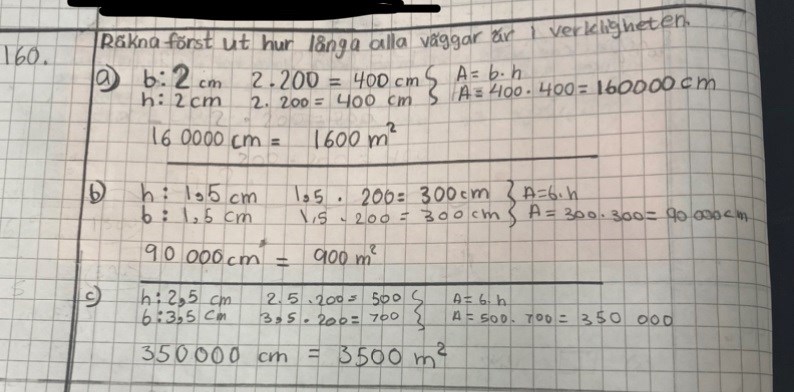 160. Räkna först ut hur långa alla väggar är i verkligheten.
a) b: 2 cm 2 . 200 = 400 cm } A = b · h
h: 2 cm 2 . 200 = 400 cm } A = 400 · 400 = 160000 cm
16 0000 cm = 1600 m²
b) h: 1,5 cm 1,5 . 200 = 300 cm } A = b · h
b: 1,5 cm 1,5 . 200 = 300 cm } A = 300 · 300 = 90 000 cm
90 000 cm = 900 m²
c) h: 2,5 cm 2,5 . 200 = 500 } A = b · h
b: 3,5 cm 3,5 . 200 = 700 } A = 500 · 700 = 350 000
350000 cm = 3500 m²